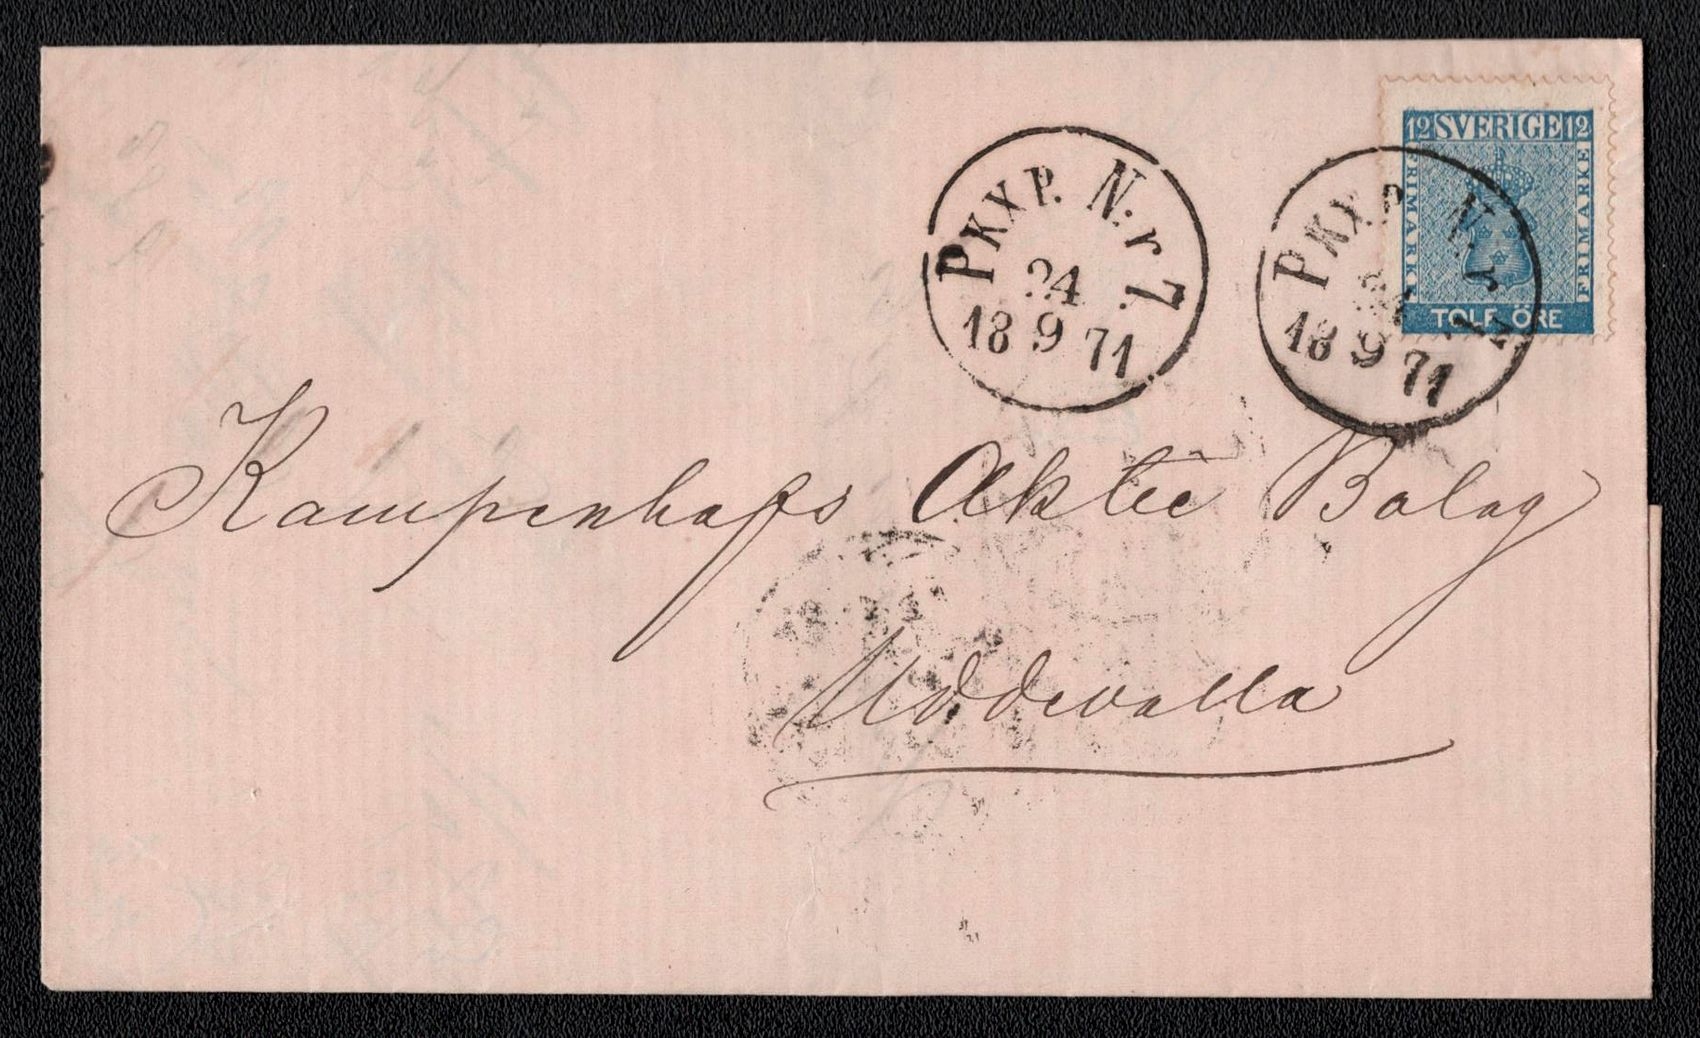 PKXP. N:r 7
24
18 9 71
PKXP. N:r 7
24
18 9 71
12 SVERIGE 12
FRIMÄRKE
FRIMÄRKE
TOLF ÖRE
Kampenhofs Aktie Bolag
Uddevalla